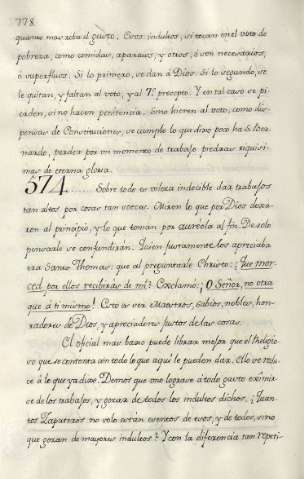 778
quanto mas acba el gusto. Estos indultos, si tocan en el voto de
pobreza, como comidas, aparatos, y otros, ó son necesarios,
ó superfluos. Si lo primero, se dan a Dios. Si lo segundo, se
le quitan, y faltan al voto, y al 7º precepto. Y en tal caso se pi-
caden, si no hacen penitencia. Sino hieren al voto, como dis-
pensas de Constituciones, se cumple lo que dixo por ha S. Ber-
nardo, perder por un momento de trabajo piedras riquisi-
mas de eterna gloria.
574. Sobre todo es vileza indecible dar trabajos
tan altos por cosas tan secas. Miren lo que por Dios dexa-
ron al principio, y lo que toman por auréola al fin. De solo
pensarlo se confundirán. Quien justamente los apreciaba
era Santo Thomas: que al preguntarle Christo: ¿Que mer-
ced por ellos recibirás de mi? Exclamó: ¡O Señor, no otra
que à ti mismo! Esto es ser Maestros, sabios, nobles, hon-
radores de Dios, y apreciadores justos de las cosas.
El oficial mas baxo puede librar mejor que el Religio-
so que se contenta con todo lo que aqui le pueden dar. Ello se redu-
ce à lo que ya dixe. Demos que uno lograse à todo gusto eximir-
se de los trabajos, y gozar de todos los indultos dichos. ¿Quan-
tos Zapateros no solo están esentos de esos, y de todos, sino
que gozan de mayores indultos? Y con la diferencia tan repeti-